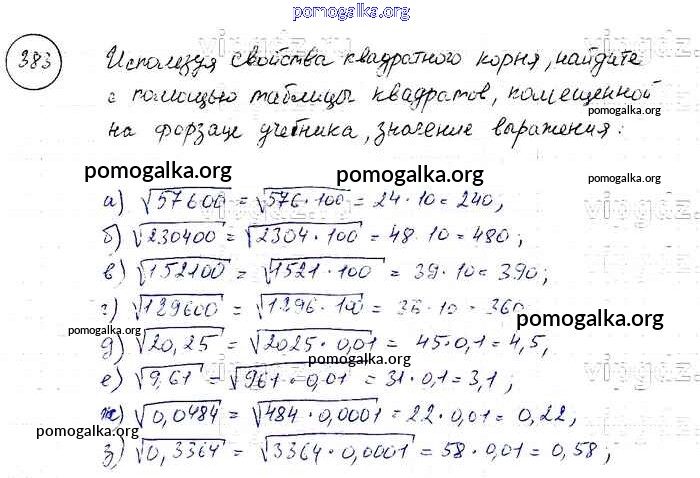 pomogalka.org
383
Используя свойства квадратного корня, найдите
с помощью таблицы квадратов, помещенной
на форзаце учебника, значение выражения:
pomogalka.org
pomogalka.org
pomogalka.org
pomogalka.org
а) √57600 = √576·100 = 24·10 = 240;
б) √230400 = √2304·100 = 48·10 = 480;
в) √152100 = √1521·100 = 39·10 = 390;
г) √129600 = √1296·100 = 36·10 = 360
pomogalka.org
pomogalka.org
д) √20,25 = √2025·0,01 = 45·0,1 = 4,5,
pomogalka.org
е) √9,61 = √961·0,01 = 31·0,1 = 3,1;
ж) √0,0484 = √484·0,0001 = 22·0,01 = 0,22,
pomogalka.org
pomogalka.org
з) √0,3364 = √3364·0,0001 = 58·0,01 = 0,58;